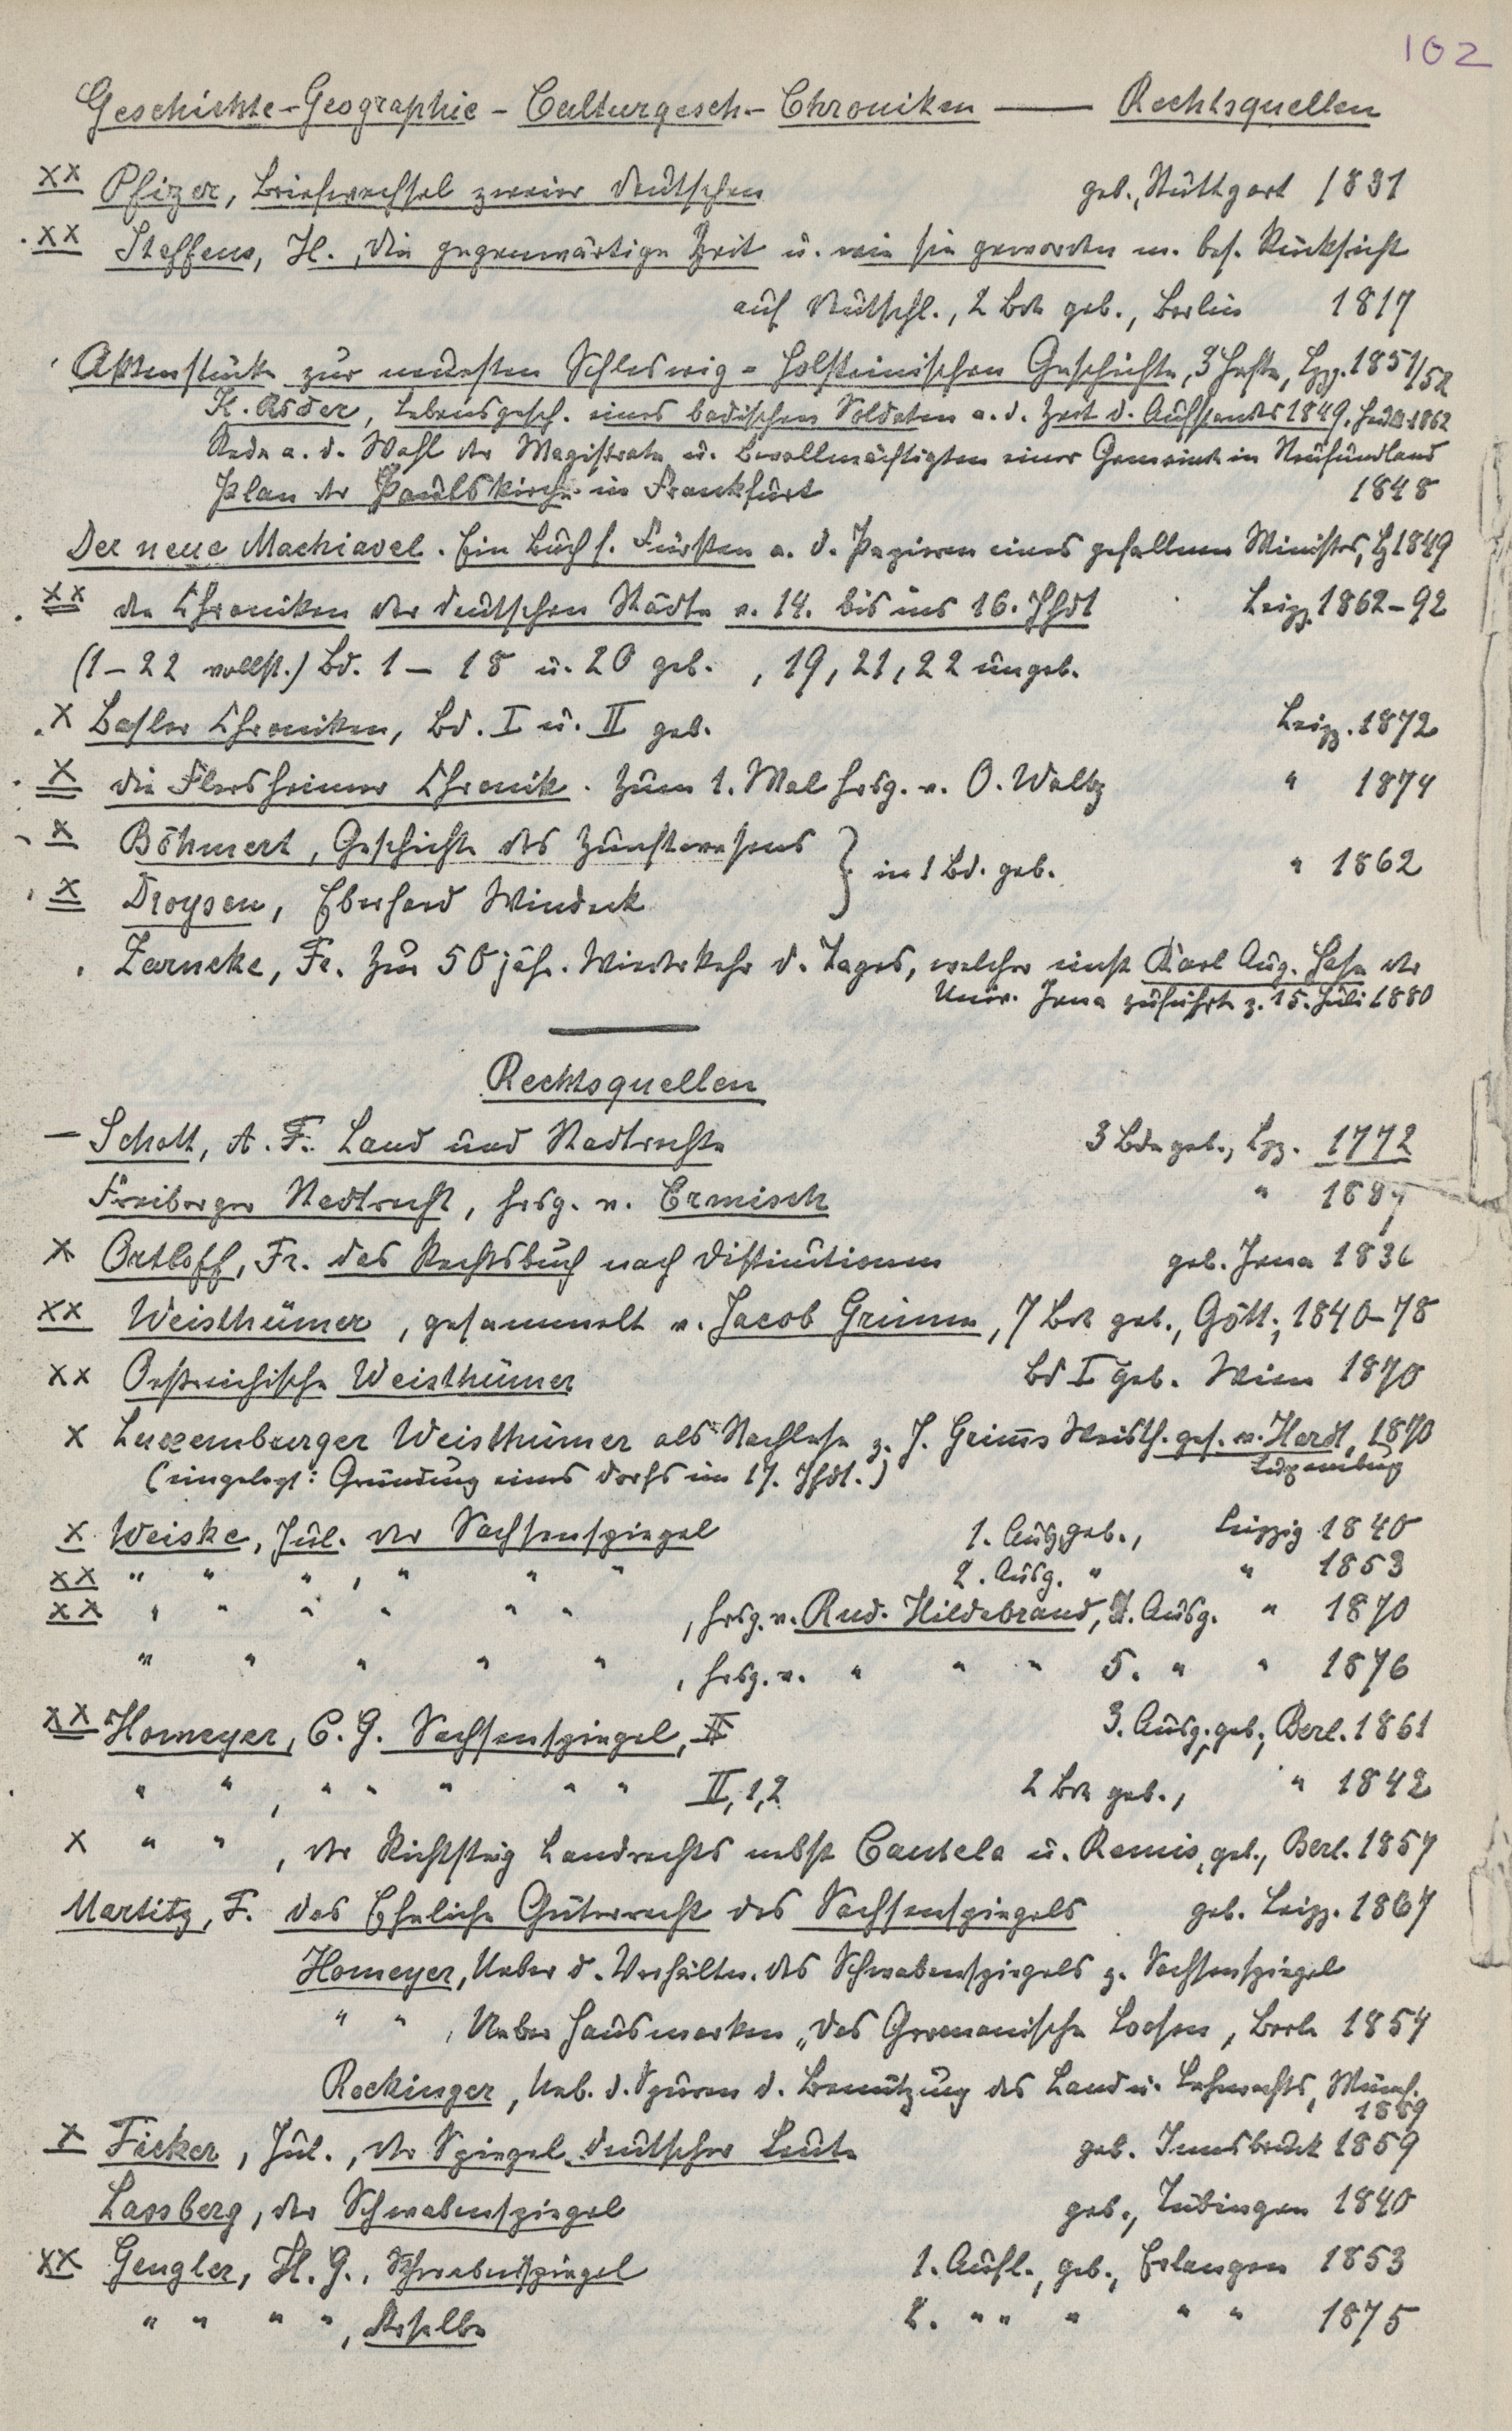 102
Geschichte-Geographie - Culturgesch.- Chroniken — Rechtsquellen
xx Pfizer, Briefwechsel zweier Deutschen geb., Stuttgart 1831
xx Steffens, H., Die gegenwärtige Zeit u. wie sie geworden m. bes. Rücksicht
auf Deutschl., 2 Bde geb., Berlin 1817
Aktenstücke zur neuesten Schleswig-Holsteinischen Geschichte, 3 Hefte, Lpzg. 1851/52
K. Rsder, Lebensgesch. eines badischen Soldaten a. d. Zeit d. Aufstandes 1849, 1862
Rede a. d. Wahl der Magistrate u. Bevollmächtigten einer Gemeinde in Neufundland
Plan der Paulskirche in Frankfurt 1848
Der neue Machiavel. Ein Buch f. Fürsten a. d. Papieren eines gefallenen Ministers, Lz 1849
xx die Chroniken der deutschen Städte v. 14. bis ins 16. Jhdt Leipz. 1862-92
(1-22 vollst.) Bd. 1 - 18 u. 20 geb., 19, 21, 22 ungeb.
x Basler Chroniken, Bd. I u. II geb. Leipz. 1872
x die Flersheimer Chronik. Zum 1. Mal hrsg. v. O. Waltz " 1874
x Böhmert, Geschichte des Zunftwesens } in 1 Bd. geb. " 1862
x Droysen, Eberhard Windeck
Zarncke, Fr. Zur 50 jähr. Wiederkehr d. Tages, welcher einst Karl Aug. Hase der
Univ. Jena zuführte z. 15. Juli 1880
Rechtsquellen
— Schott, A. F. Land und Stadtrechte 3 Bde geb., Lpz. 1772
Freiberger Stadtrecht, hrsg. v. Ermisch " 1889
x Ortloff, Fr. das Rechtsbuch nach Distinctionen geb. Jena 1836
xx Weisthümer, gesammelt v. Jacob Grimm, 7 Bde geb., Gött., 1840-78
xx Oestreichische Weisthümer Bd I geb. Wien 1870
x Luxemburger Weisthümer als Nachlese z. J. Grimms Weisth. ges. v. Hardt, 1870
Luxemburg
(eingelegt: Gründung eines Dorfs im 17. Jhdt.)
x Weiske, Jul. der Sachsenspiegel 1. Ausg. geb., Leipzig 1840
xx " " " , " " " 2. Ausg. " " 1853
xx " " " " " " , hrsg. v. Rud. Hildebrand, 4. Ausg. " 1870
" " " " " , hrsg. v. " " " 5. " " 1876
xx Homeyer, C. G. Sachsenspiegel, I 3. Ausg. geb., Berl. 1861
" " , " " " " " II, 1, 2 2 Bde geb., " 1842
x " " , der Richtsteig Landrechts nebst Cautela u. Premis, geb., Berl. 1857
Martitz, F. das Eheliche Güterrecht des Sachsenspiegels geb. Leipz. 1867
Homeyer, Ueber d. Verhältn. des Schwabenspiegels z. Sachsenspiegel
" " , Ueber Hausmarken „Das Germanische Loosen, Berl. 1854
Rockinger, Ueb. d. Spuren d. Benutzung des Land u. Lehnrechts, Münch.
1889
x Ficker, Jul., der Spiegel deutscher Leute geb. Innsbruck 1859
Lassberg, der Schwabenspiegel geb., Tübingen 1840
xx Gengler, H. G., Schwabenspiegel 1. Aufl., geb., Erlangen 1853
" " " " , derselbe 2. " " " " " 1875